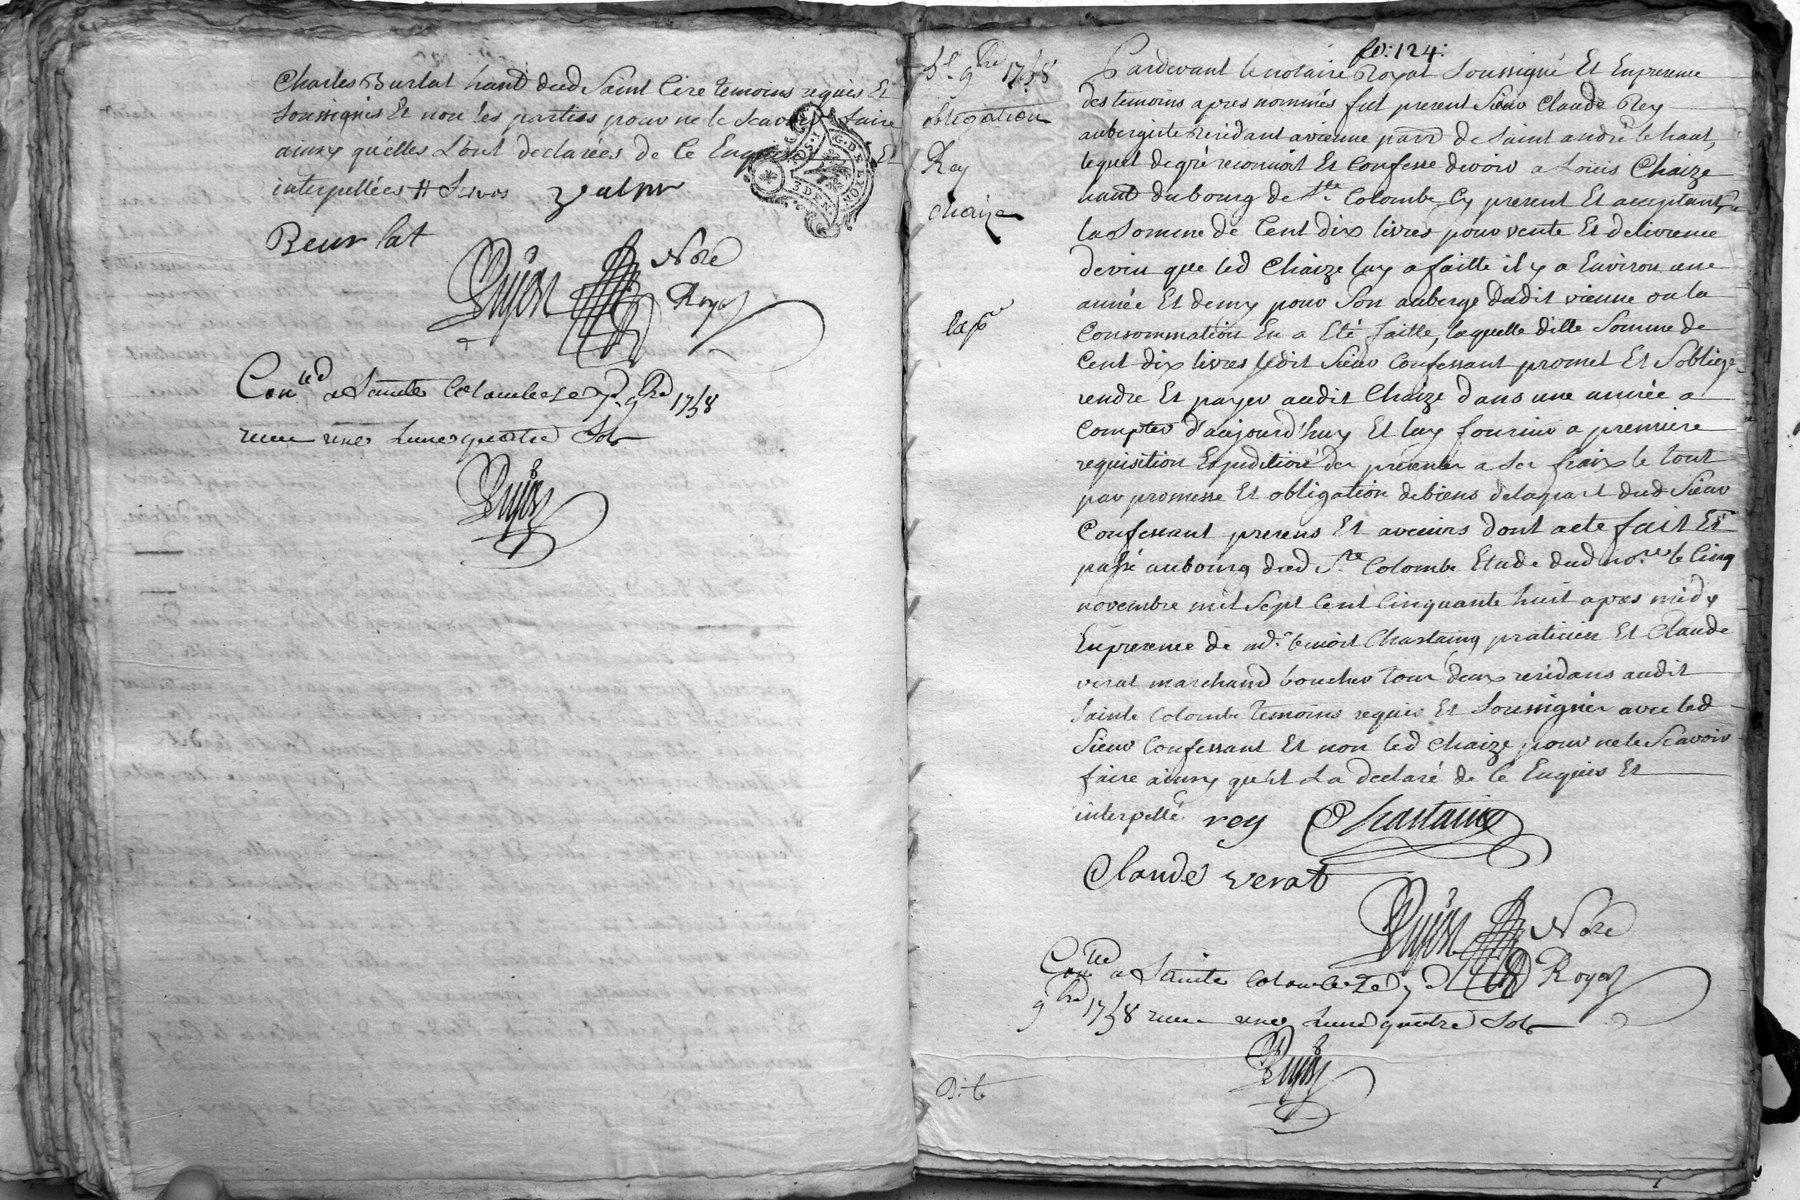 Charles Burlat hant dud Saint Cire temoins requis Et
Soussignés Et non les parties pour ne le Scavoir faire
ainsy qu'elles L'ont declarées de ce Enquises Et
interpellées
Beurlat
Nore
Dujon Royal
Con.led a Sainte Colombe Le 9bre 1758
une Livre quatre Sols
Dujon
fo: 124:
5e 9bre 1758
obligation
Rey
chaize
Exp.
Pardevant le notaire Royal Soussigné Et En presence
des temoins apres nommés fut present Sieur Claude Rey
aubergiste residant a vienne parr de Saint andré le haut,
lequel de gré reconnoit Et Confesse devoir a Louis Chaize
hant du bourg de Ste Colombe Cy present Et acceptant
la Somme de Cent dix livres pour vente Et delivrence
de vin que led Chaize luy a faitte il y a Environ une
année Et demy pour Son auberge dudit vienne ou la
Consommation En a Eté faitte, laquelle ditte Somme de
Cent dix livres ledit Sieur Confessant promet Et S'oblige
rendre Et payer audit Chaize dans une année a
Compter d'aujourd'huy Et luy fournir a premiere
requisition Expedition des presentes a Ses fraix le tout
par promesse Et obligation de biens de la part dud Sieur
Confessant presens Et avenirs dont acte fait Et
passé au bourg dud Ste Colombe Etude dud nore le Cinq
novembre mil Sept Cent Cinquante huit apres midy
En presence de md. benoit Chastaing praticien Et Claude
verat marchand boucher tous deux residans audit
Sainte Colombe temoins requis Et Soussignés avec led
Sieur Confessant Et non led Chaize pour ne le Scavoir
faire ainsy qu'il La declaré de ce Enquis Et
interpellé rey Chastaing
Claude verat
Dujon Nore
Royal
Con.led a Sainte Colombe Le
9bre 1758 une Livre quatre Sols
Dujon